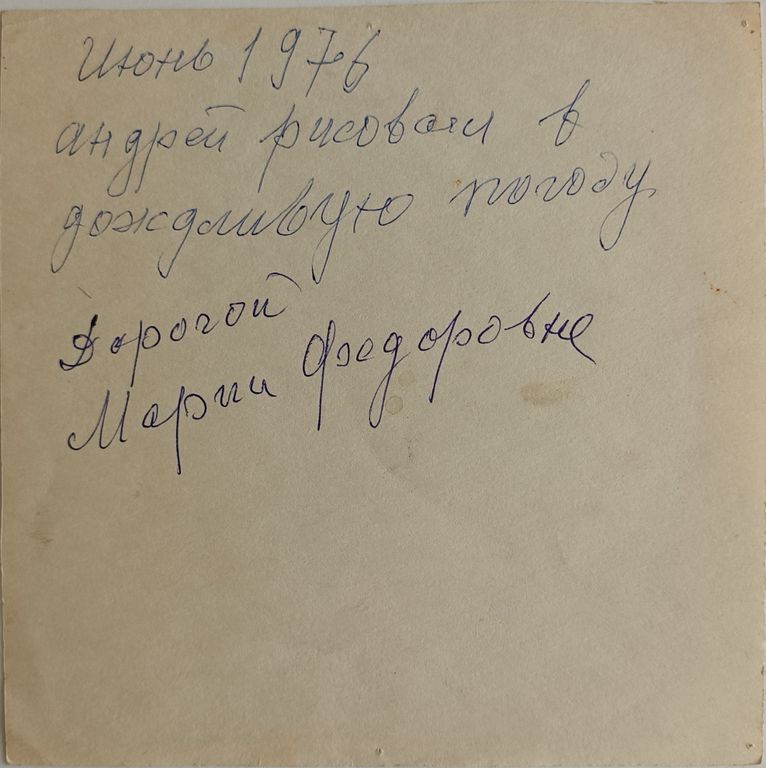 Июнь 1976
андрей рисовал в
дождливую погоду
Дорогой
Марии Федоровне